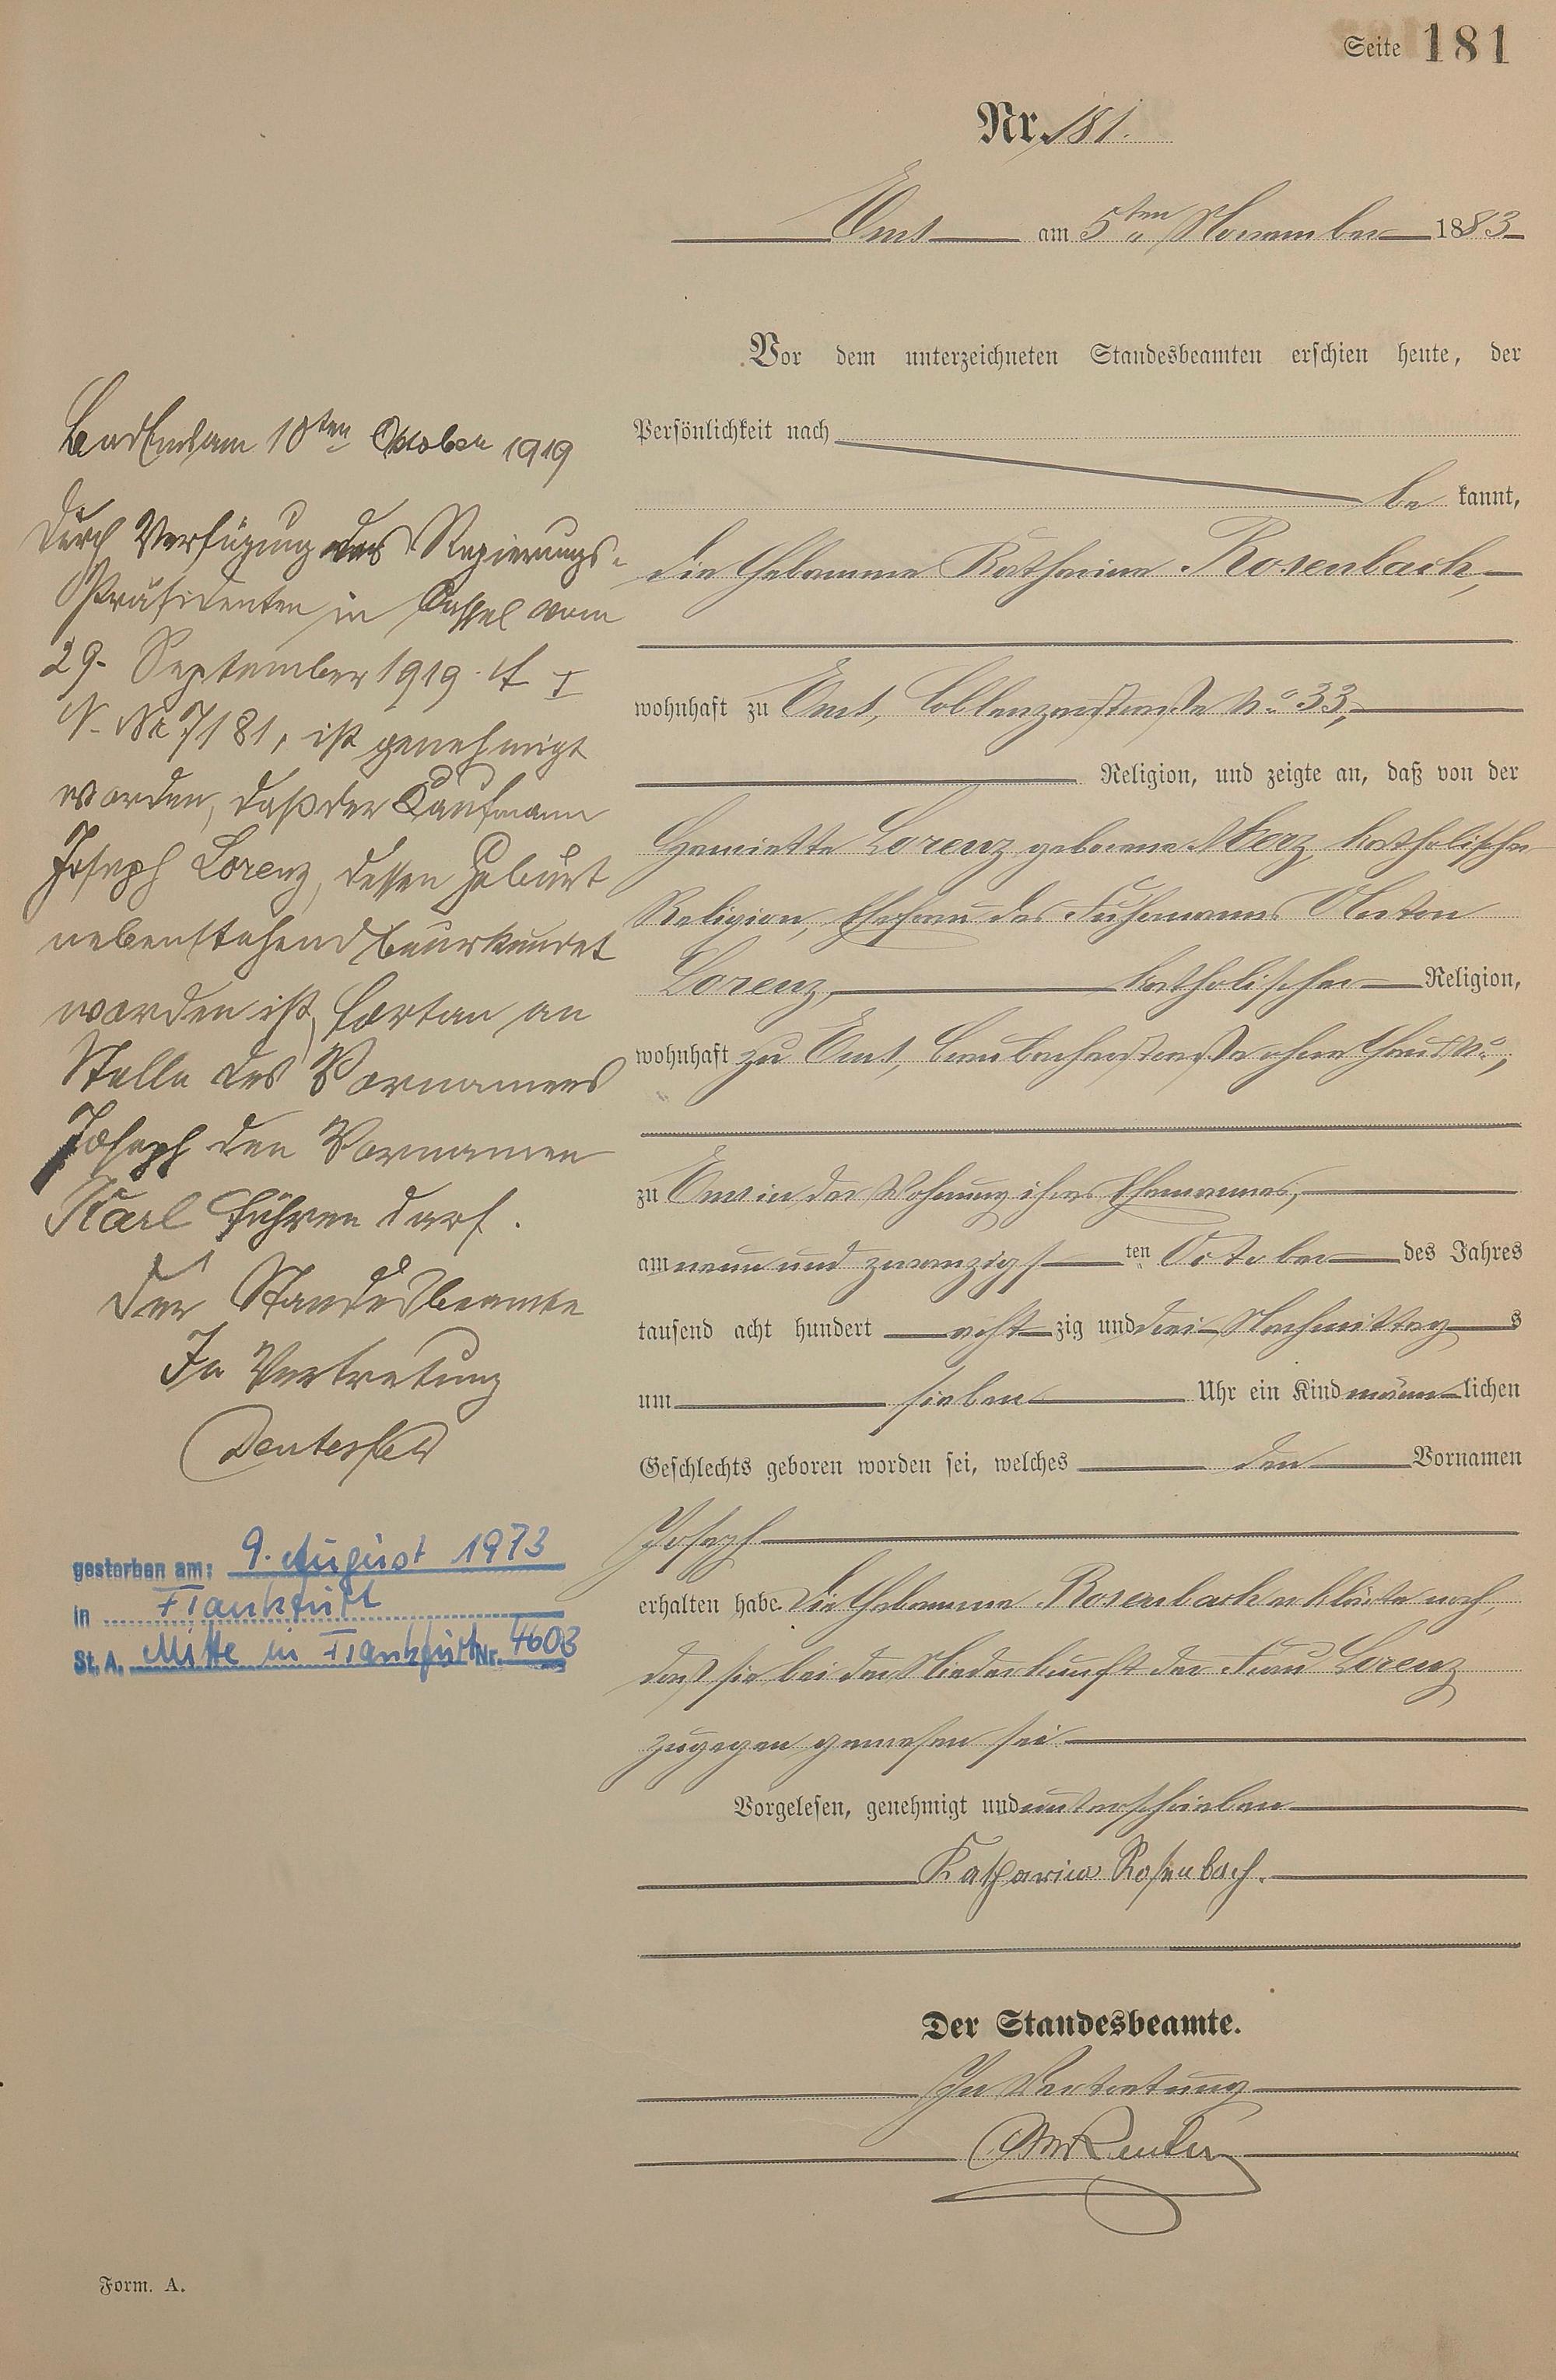 Seite 181
Nr. 181.
Ems am 5ten November 1883
Vor dem unterzeichneten Standesbeamten erschien heute, der
Persönlichkeit nach
be kannt,
die Hebamme Katharina Rosenbach,
wohnhaft zu Ems, Coblenzerstraße No 33,
Religion, und zeigte an, daß von der
Henriette Lorenz geborene Merz, katholischer
Religion, Ehefrau des Fuhrmanns Anton
Lorenz, katholischer Religion,
wohnhaft zu Ems, Braubacherstraße ohne Haus No,
zu Ems in der Wohnung ihres Ehemannes,
am neun und zwanzigsten October des Jahres
tausend acht hundert acht zig und drei Nachmittags
um sieben Uhr ein Kind männlichen
Geschlechts geboren worden sei, welches den Vornamen
Joseph
erhalten habe. Die Hebamme Rosenbach erklärte noch,
daß sie bei der Niederkunft der Frau Lorenz
zugegen gewesen sei.
Vorgelesen, genehmigt und unterschrieben
Katharina Rosenbach.
Der Standesbeamte.
In Vertretung
Bad Ems am 10ten Oktober 1919
Durch Verfügung des Regierungs-
Präsidenten in Cassel vom
29. September 1919. A I
N. Nr 7181, ist genehmigt
worden, daß der Kaufmann
Joseph Lorenz, dessen Geburt
nebenstehend beurkundet
worden ist, fortan an
Stelle des Vornamens
Joseph den Vornamen
Karl führen darf.
Der Standesbeamte
In Vertretung
gestorben am: 9. August 1973
in Frankfurt
St. A. Mitte in Frankfurt Nr. 4603
Form. A.